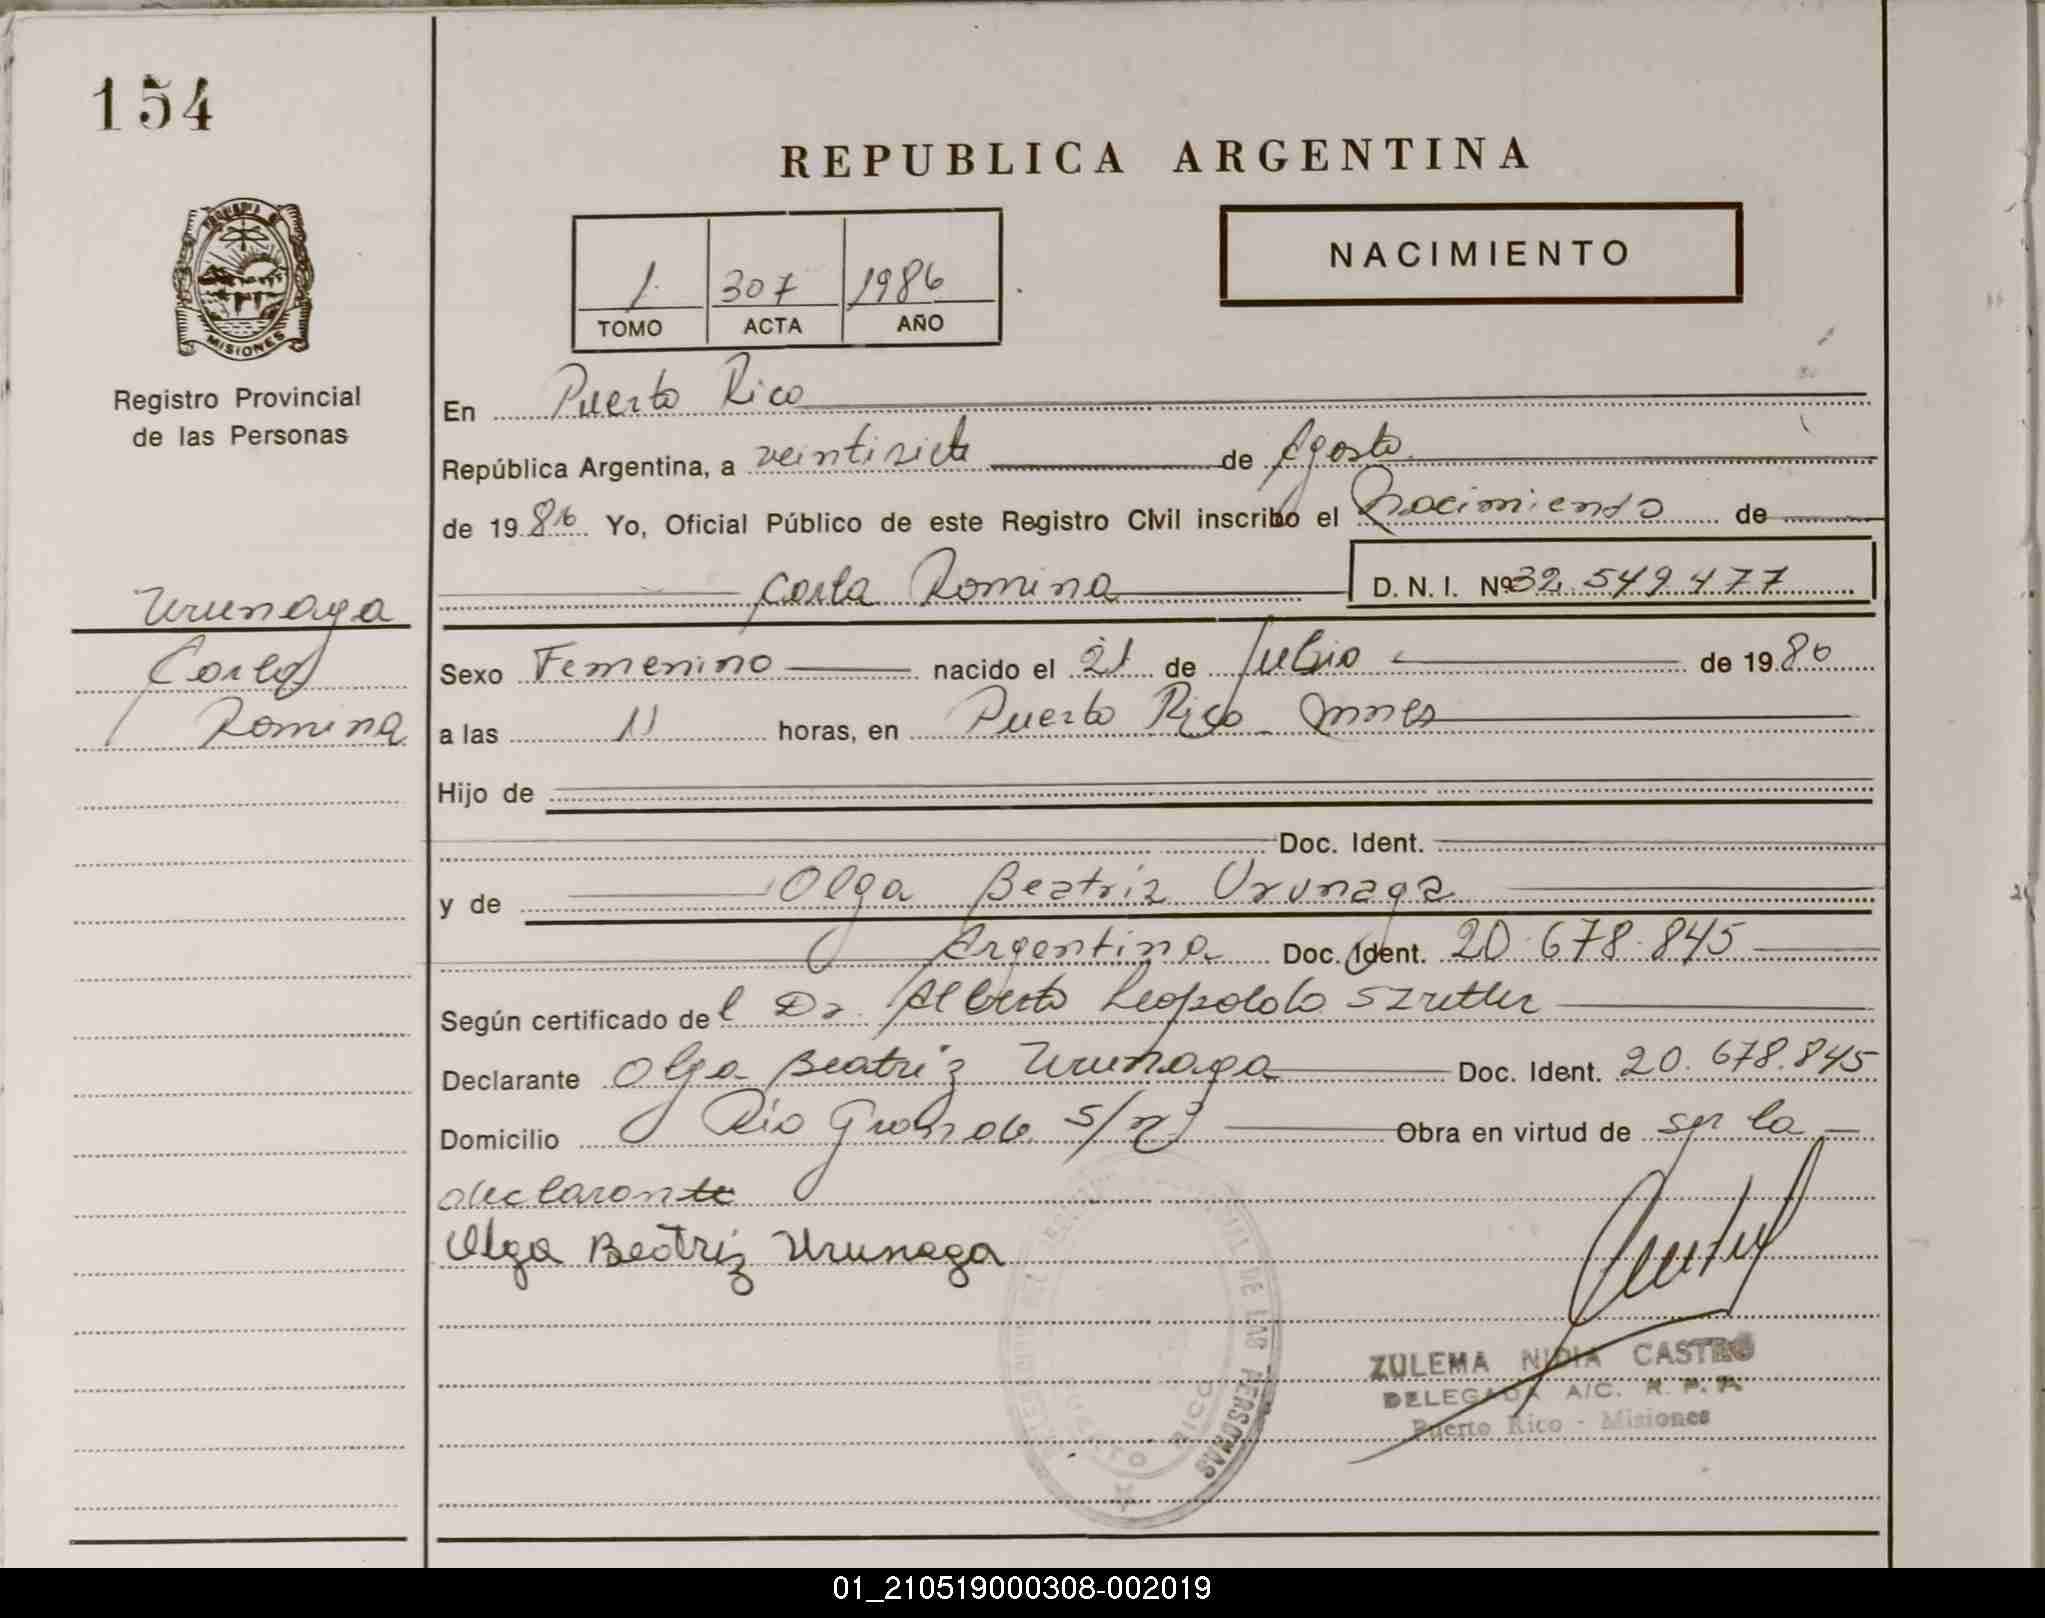 154
REPUBLICA ARGENTINA
PROVINCIA DE
MISIONES
Registro Provincial
de las Personas
1 307 1986
TOMO ACTA AÑO
NACIMIENTO
En Puerto Rico
República Argentina, a veintisiete de Agosto
de 1986 Yo, Oficial Público de este Registro Civil inscribo el Nacimiento de
Carla Romina D. N. I. Nº 32.549.477
Urunaga
Carla
Romina
Sexo Femenino nacido el 21 de Julio de 1986
a las 11 horas, en Puerto Rico Mnes
Hijo de
Doc. Ident.
y de Olga Beatriz Urunaga
Argentina Doc. Ident. 20.678.845
Según certificado del Dr. Alberto Leopoldo
Declarante Olga Beatriz Urunaga Doc. Ident. 20.678.845
Domicilio Rio Grande s/nº Obra en virtud de ser la
declarante
Olga Beatriz Urunaga
DE LAS PERSONAS
PUERTO RICO
ZULEMA NIDIA CASTRO
DELEGADA A/C. R. P. P.
Puerto Rico - Misiones
01_210519000308-002019